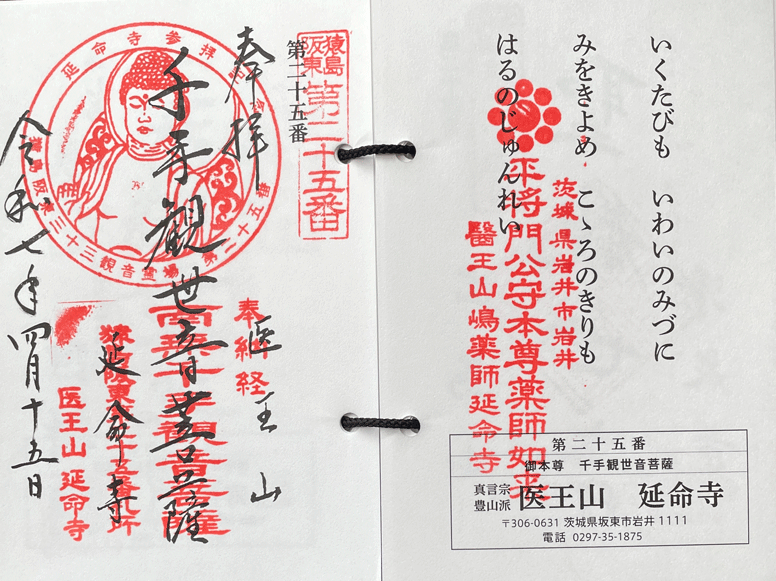 いくたびも いわいのみづに
みをきよめ こゝろのきりも
はるのじゅんれい
茨城県岩井市岩井
平将門公守本尊薬師如来
醫王山嶋薬師延命寺
第二十五番
御本尊 千手観世音菩薩
真言宗
豊山派
医王山 延命寺
〒306-0631 茨城県坂東市岩井 1111
電話 0297-35-1875
猿島
阪東
第二十五番
第二十五番
奉拝
延命寺参拝
三十三観音霊場
千手観世音菩薩
奉納経
医王山
延命寺
医王山 延命寺
令和七年四月十五日